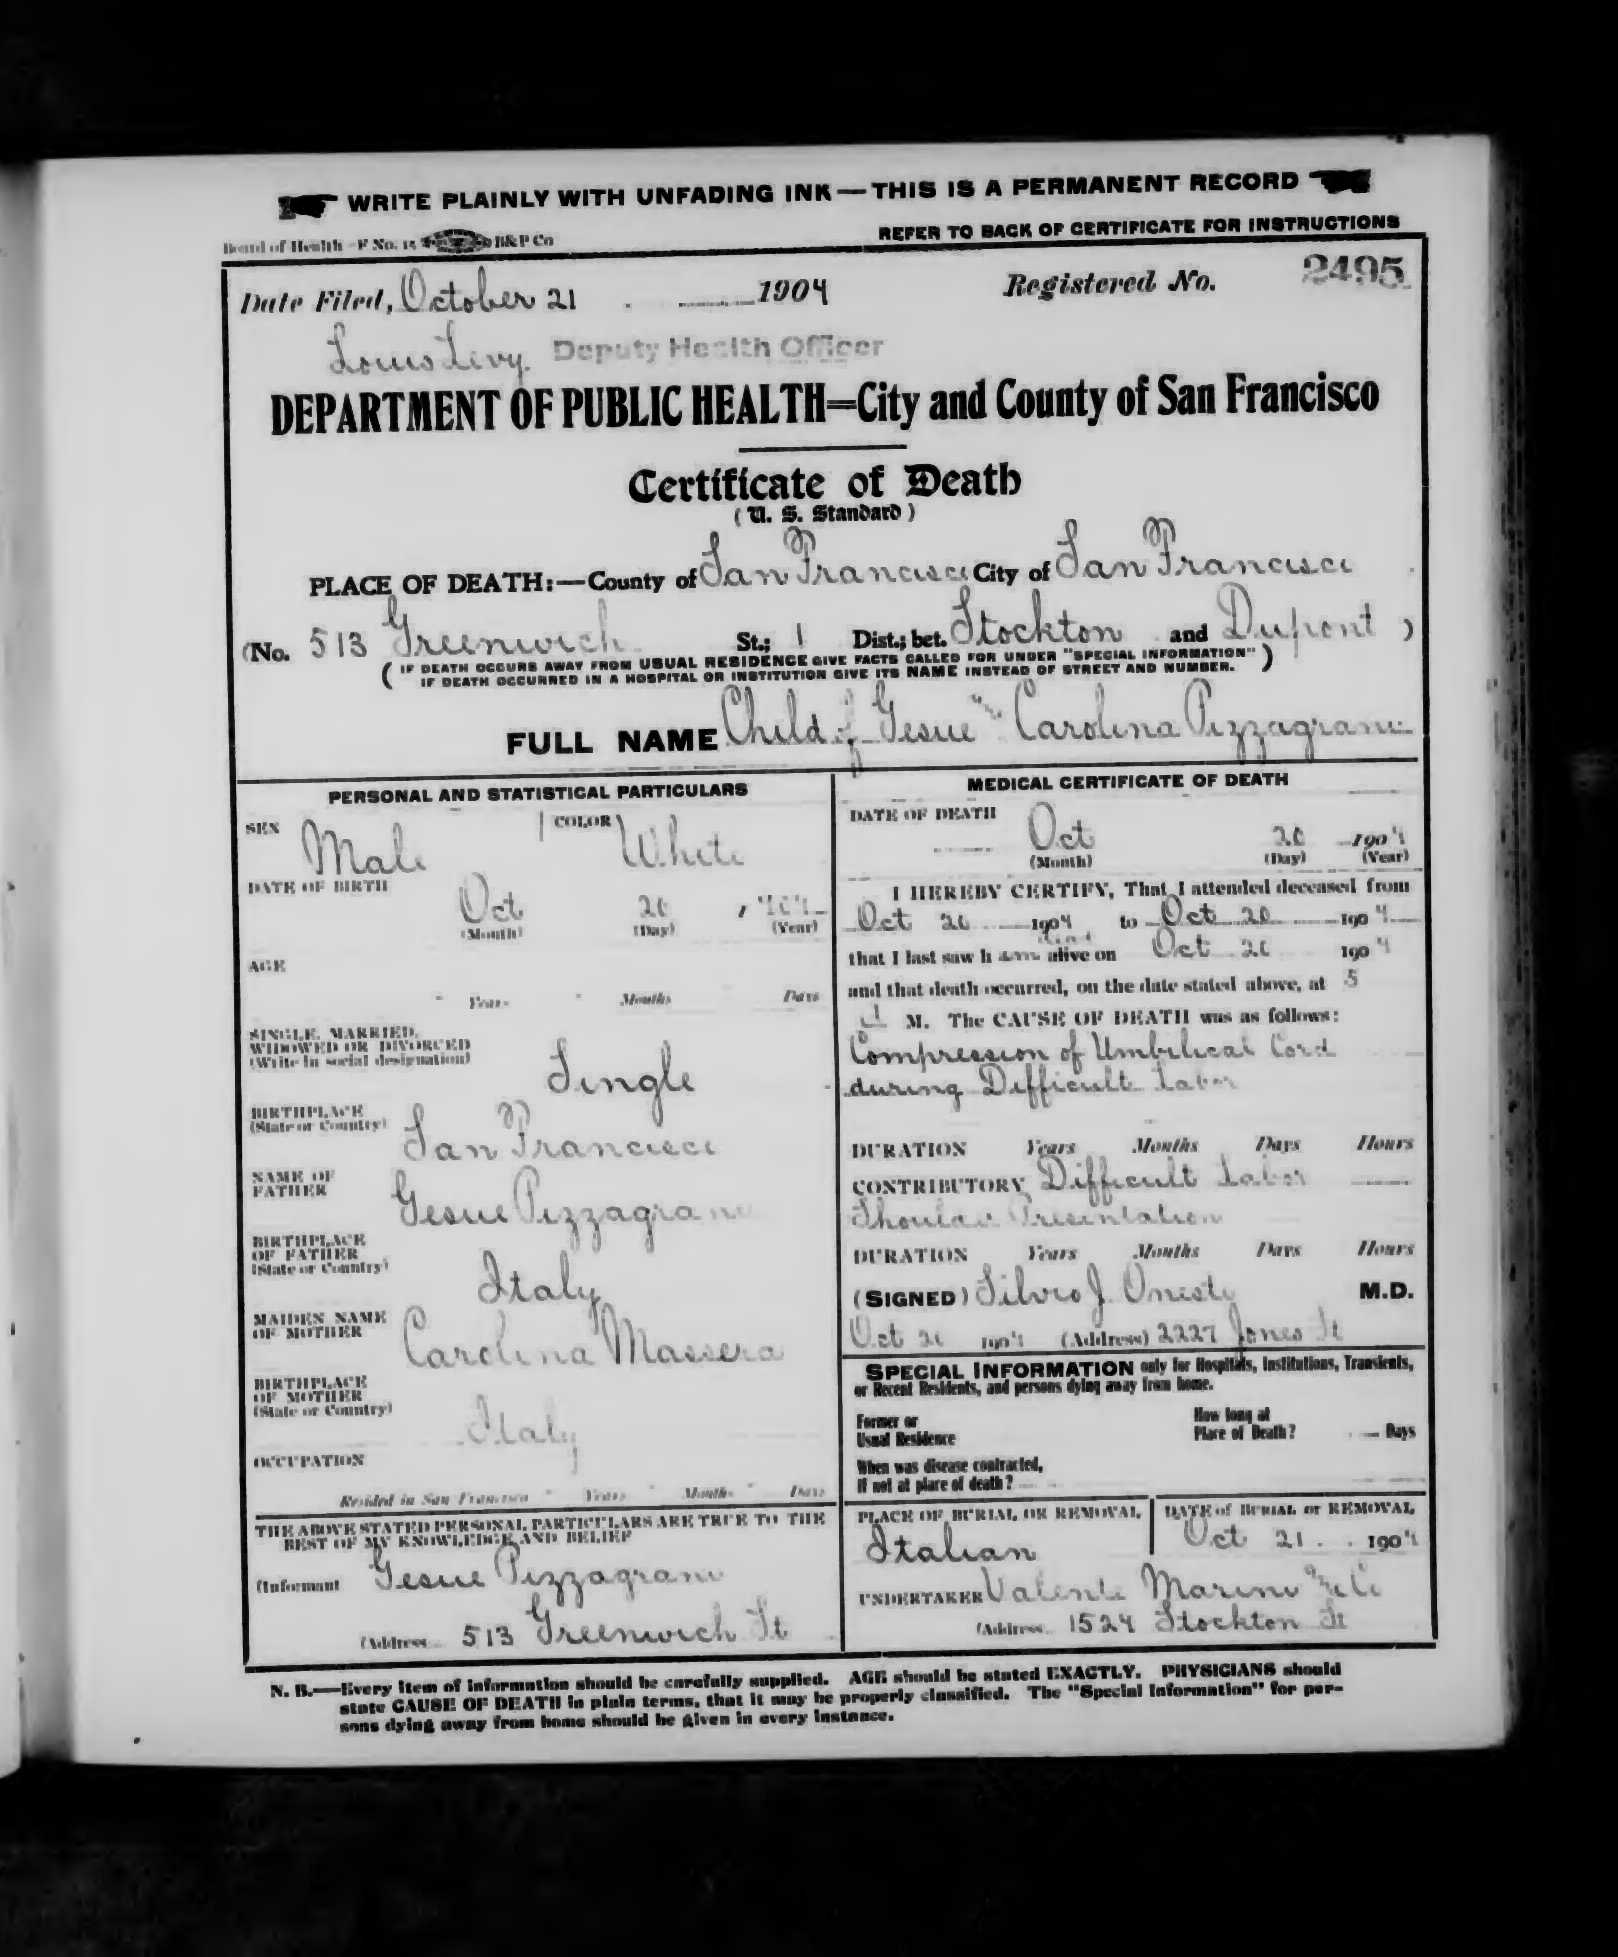 WRITE PLAINLY WITH UNFADING INK — THIS IS A PERMANENT RECORD
Board of Health - F No. 15 B&P Co
REFER TO BACK OF CERTIFICATE FOR INSTRUCTIONS
Date Filed, October 21 1904 Registered No. 2495
Louis Levy. Deputy Health Officer
DEPARTMENT OF PUBLIC HEALTH=City and County of San Francisco
Certificate of Death
(U. S. Standard)
PLACE OF DEATH:—County of San Francisco City of San Francisco
(No. 513 Greenwich St.; 1 Dist.; bet. Stockton and Dupont )
( IF DEATH OCCURS AWAY FROM USUAL RESIDENCE GIVE FACTS CALLED FOR UNDER "SPECIAL INFORMATION" )
IF DEATH OCCURRED IN A HOSPITAL OR INSTITUTION GIVE ITS NAME INSTEAD OF STREET AND NUMBER.
FULL NAME Child of Gesue and Carolina Pizzagrani
PERSONAL AND STATISTICAL PARTICULARS
SEX Male COLOR White
DATE OF BIRTH Oct 20, 1904
(Month) (Day) (Year)
AGE
Years Months Days
SINGLE, MARRIED,
WIDOWED OR DIVORCED
(Write in social designation) Single
BIRTHPLACE
(State or Country) San Francisco
NAME OF
FATHER Gesue Pizzagrani
BIRTHPLACE
OF FATHER
(State or Country) Italy
MAIDEN NAME
OF MOTHER Carolina Massera
BIRTHPLACE
OF MOTHER
(State or Country) Italy
OCCUPATION
Resided in San Francisco Years Months Days
THE ABOVE STATED PERSONAL PARTICULARS ARE TRUE TO THE
BEST OF MY KNOWLEDGE AND BELIEF
(Informant Gesue Pizzagrani
(Address 513 Greenwich St
MEDICAL CERTIFICATE OF DEATH
DATE OF DEATH
Oct 20 1904
(Month) (Day) (Year)
I HEREBY CERTIFY, That I attended deceased from
Oct 20 1904 to Oct 20 1904
that I last saw h alive on Oct 20 1904
and that death occurred, on the date stated above, at 5
M. The CAUSE OF DEATH was as follows:
Compression of Umbilical Cord
during Difficult Labor
DURATION Years Months Days Hours
CONTRIBUTORY Difficult Labor
Shoulder Presentation
DURATION Years Months Days Hours
(SIGNED) Silvio J. Onesti M.D.
Oct 20 1904 (Address) 2227 Jones St
SPECIAL INFORMATION only for Hospitals, Institutions, Transients,
or Recent Residents, and persons dying away from home.
Former or
Usual Residence
How long at
Place of Death? Days
When was disease contracted,
If not at place of death?
PLACE OF BURIAL OR REMOVAL
Italian
DATE of BURIAL or REMOVAL
Oct 21 1904
UNDERTAKER Valente Marini & Co
(Address 1524 Stockton St
N. B.—Every item of information should be carefully supplied. AGE should be stated EXACTLY. PHYSICIANS should
state CAUSE OF DEATH in plain terms, that it may be properly classified. The "Special Information" for per-
sons dying away from home should be given in every instance.